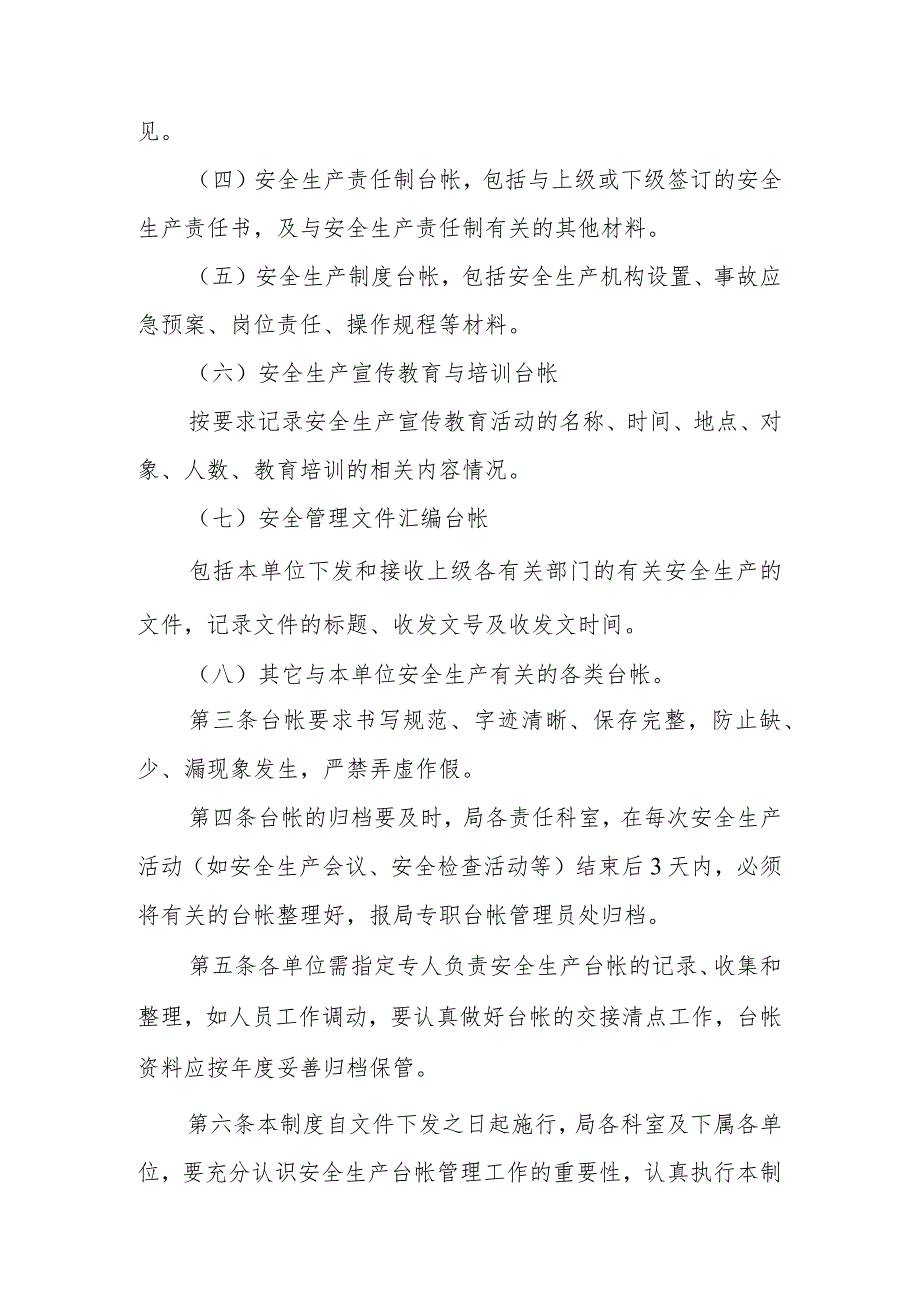 见。
（四）安全生产责任制台帐，包括与上级或下级签订的安全
生产责任书，及与安全生产责任制有关的其他材料。
（五）安全生产制度台帐，包括安全生产机构设置、事故应
急预案、岗位责任、操作规程等材料。
（六）安全生产宣传教育与培训台帐
按要求记录安全生产宣传教育活动的名称、时间、地点、对
象、人数、教育培训的相关内容情况。
（七）安全管理文件汇编台帐
包括本单位下发和接收上级各有关部门的有关安全生产的
文件，记录文件的标题、收发文号及收发文时间。
（八）其它与本单位安全生产有关的各类台帐。
第三条台帐要求书写规范、字迹清晰、保存完整，防止缺、
少、漏现象发生，严禁弄虚作假。
第四条台帐的归档要及时，局各责任科室，在每次安全生产
活动（如安全生产会议、安全检查活动等）结束后3天内，必须
将有关的台帐整理好，报局专职台帐管理员处归档。
第五条各单位需指定专人负责安全生产台帐的记录、收集和
整理，如人员工作调动，要认真做好台帐的交接清点工作，台帐
资料应按年度妥善归档保管。
第六条本制度自文件下发之日起施行，局各科室及下属各单
位，要充分认识安全生产台帐管理工作的重要性，认真执行本制